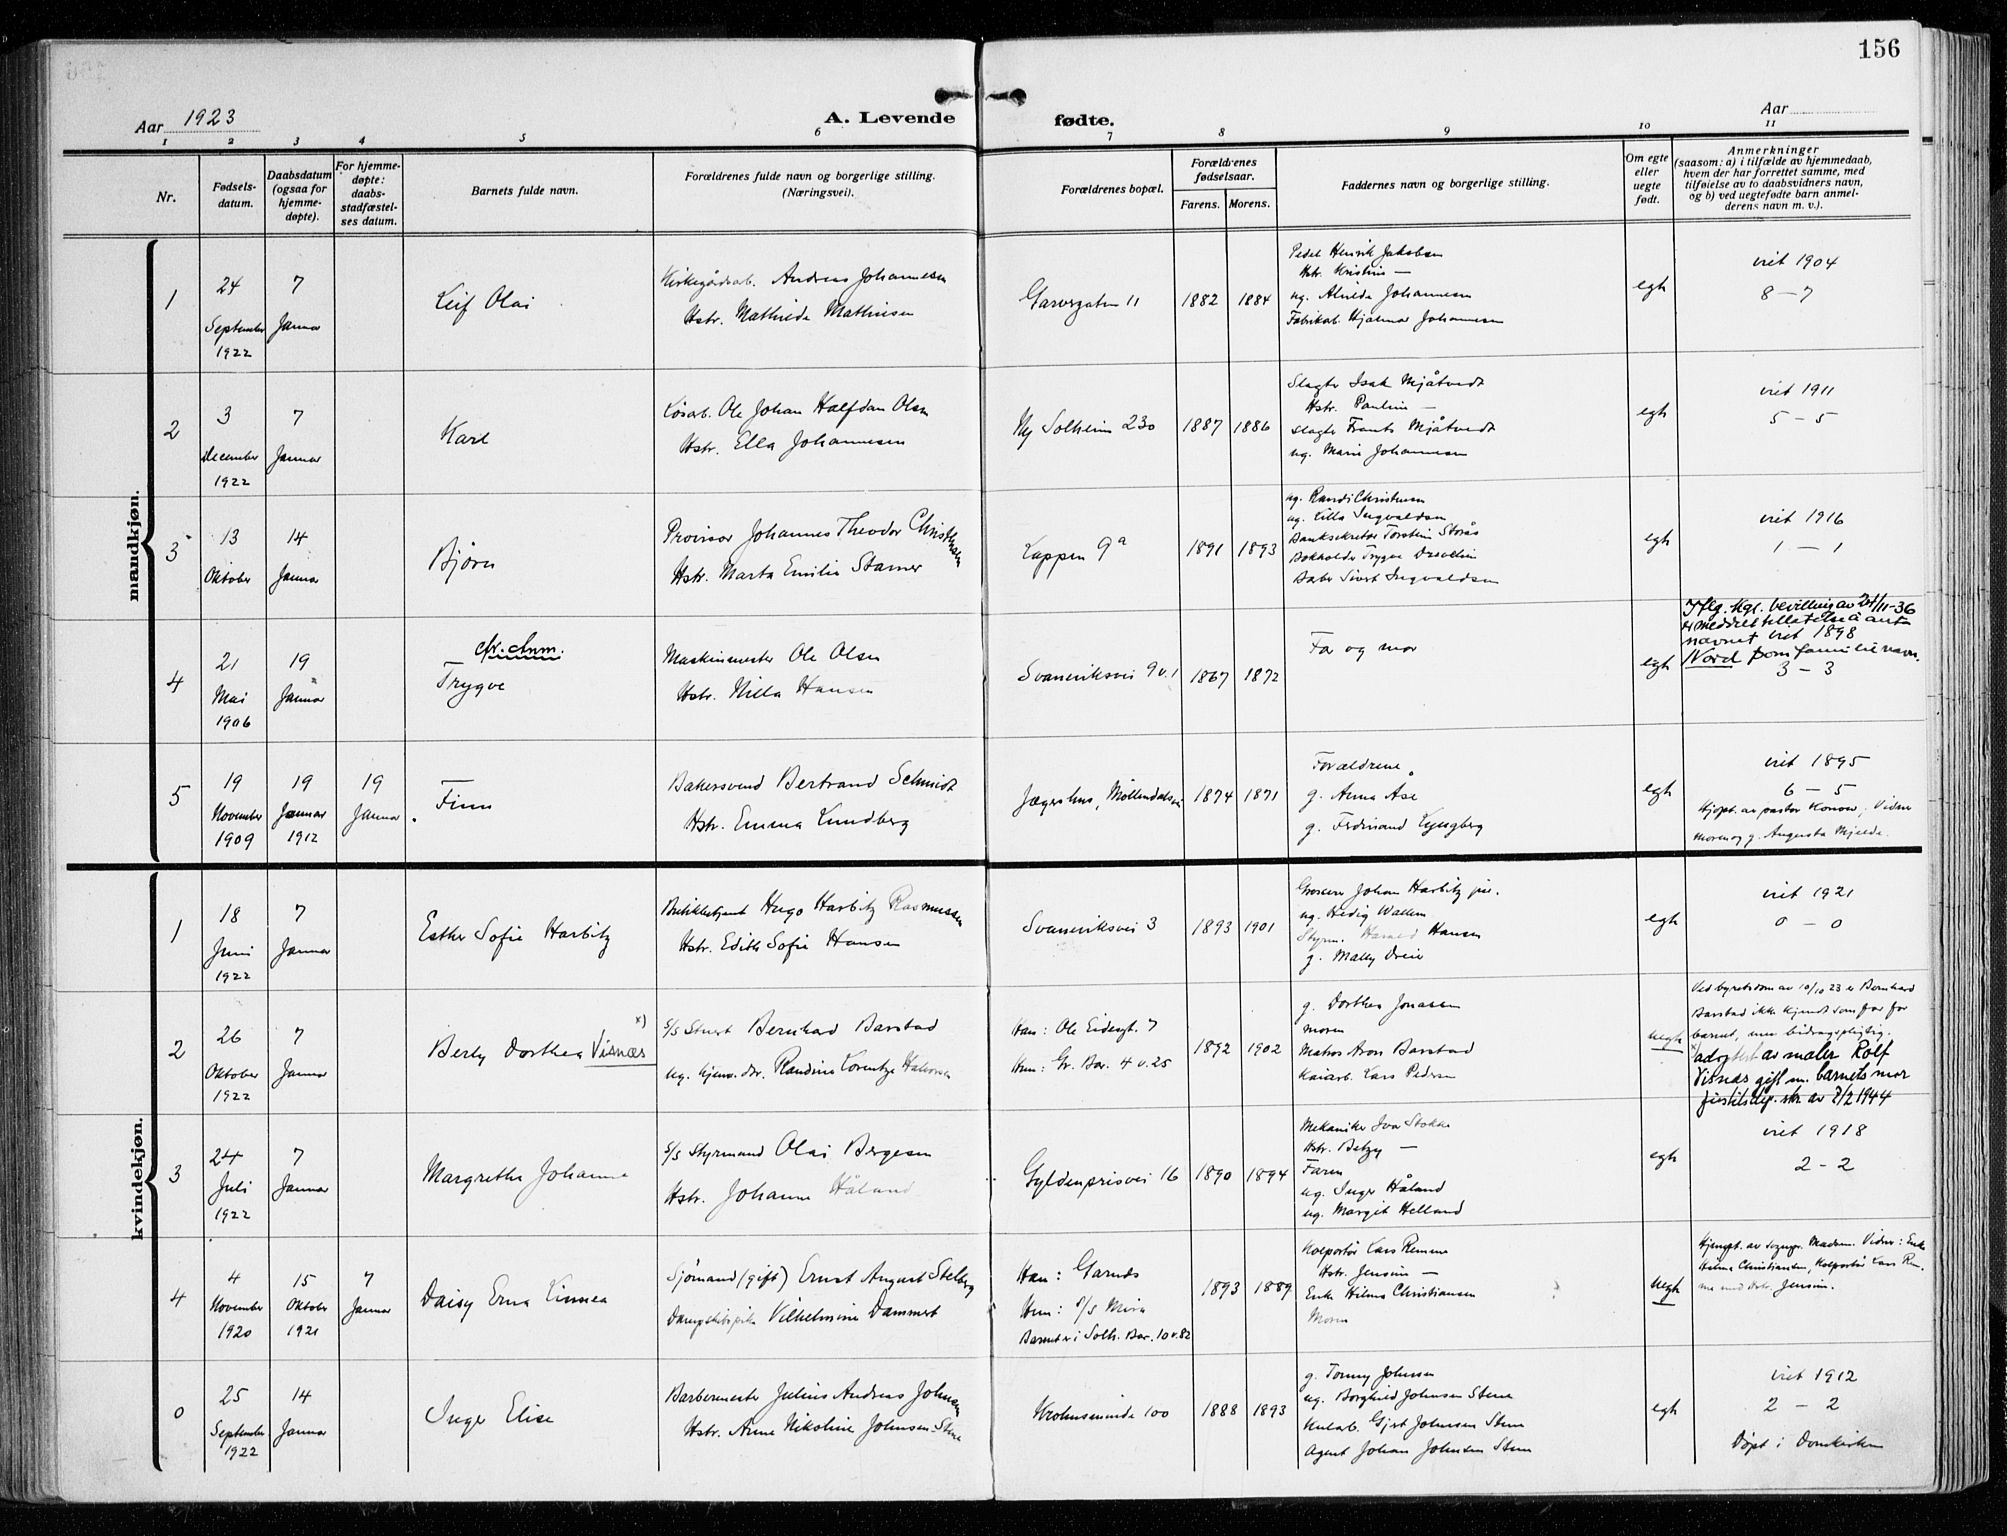 156
Aar 1923
A. Levende fødte.
Aar
1 2 3 4 5 6 7 8 9 10 11
Nr.
Fødsels-
datum.
Daabsdatum
(ogsaa for
hjemme-
døpte).
For hjemme-
døpte:
daabs-
stadfæstel-
ses datum.
Barnets fulde navn.
Forældrenes fulde navn og borgerlige stilling.
(Næringsvei).
Forældrenes bopæl.
Forældrenes
fødselsaar.
Farens. Morens.
Faddernes navn og borgerlige stilling.
Om egte
eller
uegte
født.
Anmerkninger
(saasom: a) i tilfælde av hjemmedaab,
hvem der har forrettet samme, med
tilføielse av to daabsvidners navn,
og b) ved uegtefødte barn anmel-
derens navn m. v.).
mandkjøn.
1
24
September
1922
7
Januar
Leif Olai
Kirkegårdsarb. Andreas Johannesen
Hstr. Mathilde Mathiesen
Garvergaten 11
1882 1884
Pedel Henrik Jakobsen
Hstr. Kristine —
ug. Alvilde Johannesen
Fabrikarb. Hjalmar Johannesen
egte
viet 1904
8 – 7
2
3
December
1922
7
Januar
Karl
Løsarb. Ole Johan Halfdan Olsen
Hstr. Ella Johannesen
Ny Solheim 230
1887 1886
Slagter Isak Mjåtvedt
Hstr. Pauline —
Slagter Frants Mjåtvedt
ug. Marie Johannesen
egte
viet 1911
5 – 5
3
13
Oktober
14
Januar
Bjørn
Provisor Johannes Theodor Christensen
Hstr. Marta Emilie Stamer
Lappen 9a
1891 1893
ug. Randi Christensen
ug. Lilla Ingvaldsen
Banksekretær Torstein Storås
Bokholder Trygve
Baker Sivert Ingvaldsen
egte
viet 1916
1 – 1
4
21
Mai
1906
19
Januar
cfr. Anm.
Trygve
Maskinmester Ole Olsen
Hstr. Nilla Hansen
Svaneviksvei 9 v. 1
1867 1872
Far og mor
egte
Iflg. kgl. bevilling av 24/11-36
er meddelt tillatelse å anta
navnet viet 1898
Nord som familienavn.
3 – 3
5
19
November
1909
19
Januar
1912
19
Januar
Finn
Bakersvend Bertrand Schmidt
Hstr. Emma Lundberg
Jægershus, Møllendalsvei
1874 1871
Forældrene
g. Anna Åse
g. Ferdinand Lyngberg
egte
viet 1895
6 – 5
Hjdøpt. av pastor Konow, Vidner
moren og g. Augusta Mjelde.
kvindekjøn.
1
18
Juni
1922
7
Januar
Esther Sofie Harbitz
Butikbetjent Hugo Harbitz Rasmussen
Hstr. Edith Sofie Hansen
Svaneviksvei 3
1893 1901
Grosserer Johan Harbitz jun.
ug. Hedvig Wallem
Styrm. Harald Hansen
g. Mally Dreier
egte
viet 1921
0 – 0
2
26
Oktober
1922
7
Januar
Berly Dorthea Visnæs x)
S/S Stuert Bernhard Barstad
ug. hjem. dtr. Randine Lorentze Halvorsen
Han: Ole Eidesgt. 7
Hun: Gr. Bar. 4 v. 25
1892 1902
g. Dorthea Jonassen
moren
Matros Aron Barstad
Kaiarb. Lars Pedersen
uegte
Ved byretsdom av 10/10 23 er Bernhard
Barstad ikke kjendt som far for
barnet, men bidragspligtig.
x) adoptert av maler Rolf
Visnæs gift m. barnets mor
justitsdep. skr. av 7/2 1944
3
24
Juli
1922
7
Januar
Margrethe Johanne
S/S Styrmand Olai Bergesen
Hstr. Johanne Håland
Gyldenprisvei 16
1890 1894
Mekaniker Ivar Stokke
Hstr. Betzy —
Faren
ug. Inger Håland
ug. Margit Helland
egte
viet 1918
2 – 2
4
4
November
1920
15
Oktober
1921
7
Januar
Daisy Erna Linnea
Sjömand (gift) Ernst August Stelberg
Dampskibspike Vilhelmine Dammert
Han: Garnes
Hun: S/S Mira
Barnet er i Solh. Bar. 10 v. 82
1893 1889
Kolportør Lars Remme
Hstr. Jensine —
Enke Hilma Christiansen
Moren
uegte
Hjemdpt. av sognepr. Madsen. Vidner: Enke
Hilma Christiansen, Kolportør Lars Rem-
me med hstr. Jensine.
0
25
September
1922
14
Januar
Inger Elise
Barbermester Julius Andreas Johnsen
Hstr. Anne Nikoline Johnsen Stene
Krohnsminde 100
1888 1893
g. Tomny Johnsen
ug. Borghild Johnsen Stene
Kularb. Gjert Johnsen Stene
Agent Johan Johnsen Stene
egte
viet 1912
2 – 2
Døpt i Domkirken